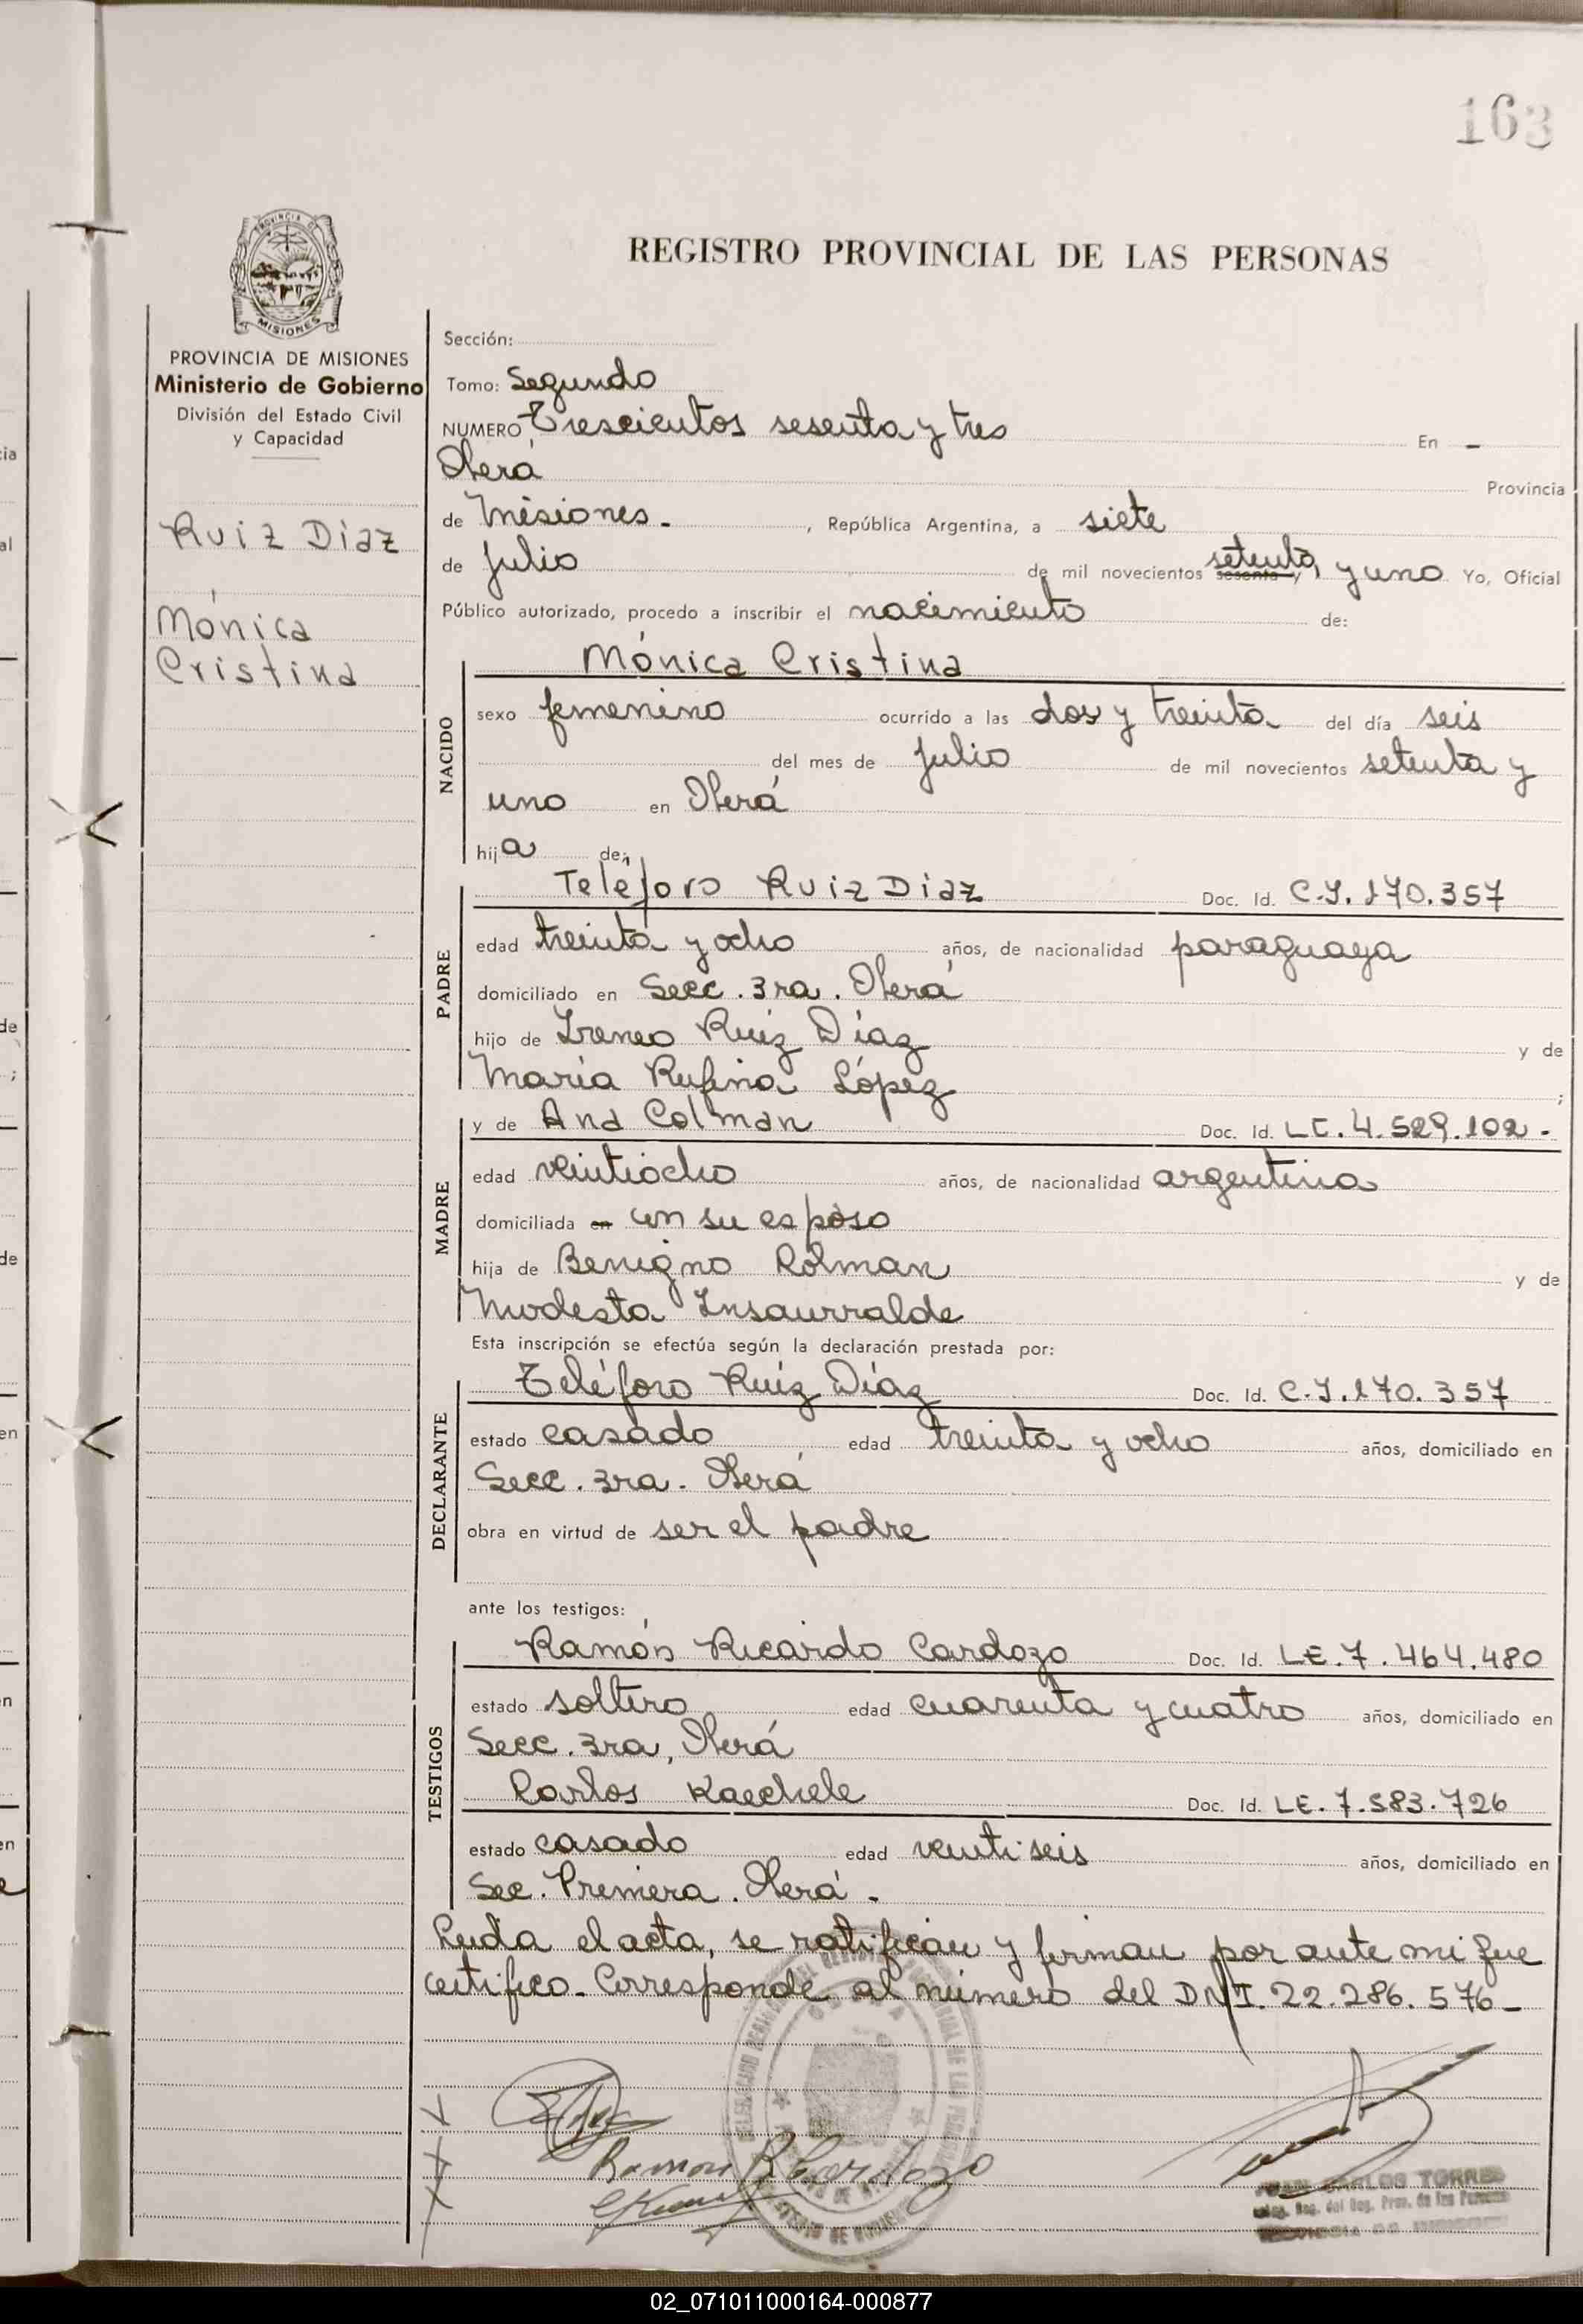 163
REGISTRO PROVINCIAL DE LAS PERSONAS
MISIONES
PROVINCIA DE MISIONES
Ministerio de Gobierno
División del Estado Civil
y Capacidad
Ruiz Díaz
Mónica
Cristina
Sección:
Tomo: Segundo
NUMERO Trescientos sesenta y tres En -
Oberá Provincia
de Misiones. , República Argentina, a siete
de Julio de mil novecientos sesenta y setenta y uno Yo, Oficial
Público autorizado, procedo a inscribir el nacimiento de:
NACIDO
Mónica Cristina
sexo femenino ocurrido a las dos y treinta del día seis
del mes de Julio de mil novecientos setenta y
uno en Oberá
hija de;
PADRE
Teléforo Ruiz Díaz Doc. Id. C.I. 170.357
edad treinta y ocho años, de nacionalidad paraguaya
domiciliado en Secc. 3ra. Oberá
hijo de Ireneo Ruiz Díaz y de
María Rufina López ;
MADRE
y de Ana Colman Doc. Id. LC. 4.529.102.-
edad veintiocho años, de nacionalidad argentina
domiciliada en con su esposo
hija de Benigno Colman y de
Modesta Insaurralde
Esta inscripción se efectúa según la declaración prestada por:
DECLARANTE
Teléforo Ruiz Díaz Doc. Id. C.I. 170.357
estado casado edad treinta y ocho años, domiciliado en
Secc. 3ra. Oberá
obra en virtud de ser el padre
ante los testigos:
TESTIGOS
Ramón Ricardo Cardozo Doc. Id. LE. 7.464.480
estado soltero edad cuarenta y cuatro años, domiciliado en
Secc. 3ra, Oberá
Carlos Kaechele Doc. Id. LE. 7.583.726
estado casado edad veintiseis años, domiciliado en
Sec. Primera. Oberá.
Leída el acta, se ratifican y firman por ante mi que
certifico. Corresponde al número del DNI. 22.286.576-
Ramon R Cardozo
JUAN CARLOS TORRES
02_071011000164-000877